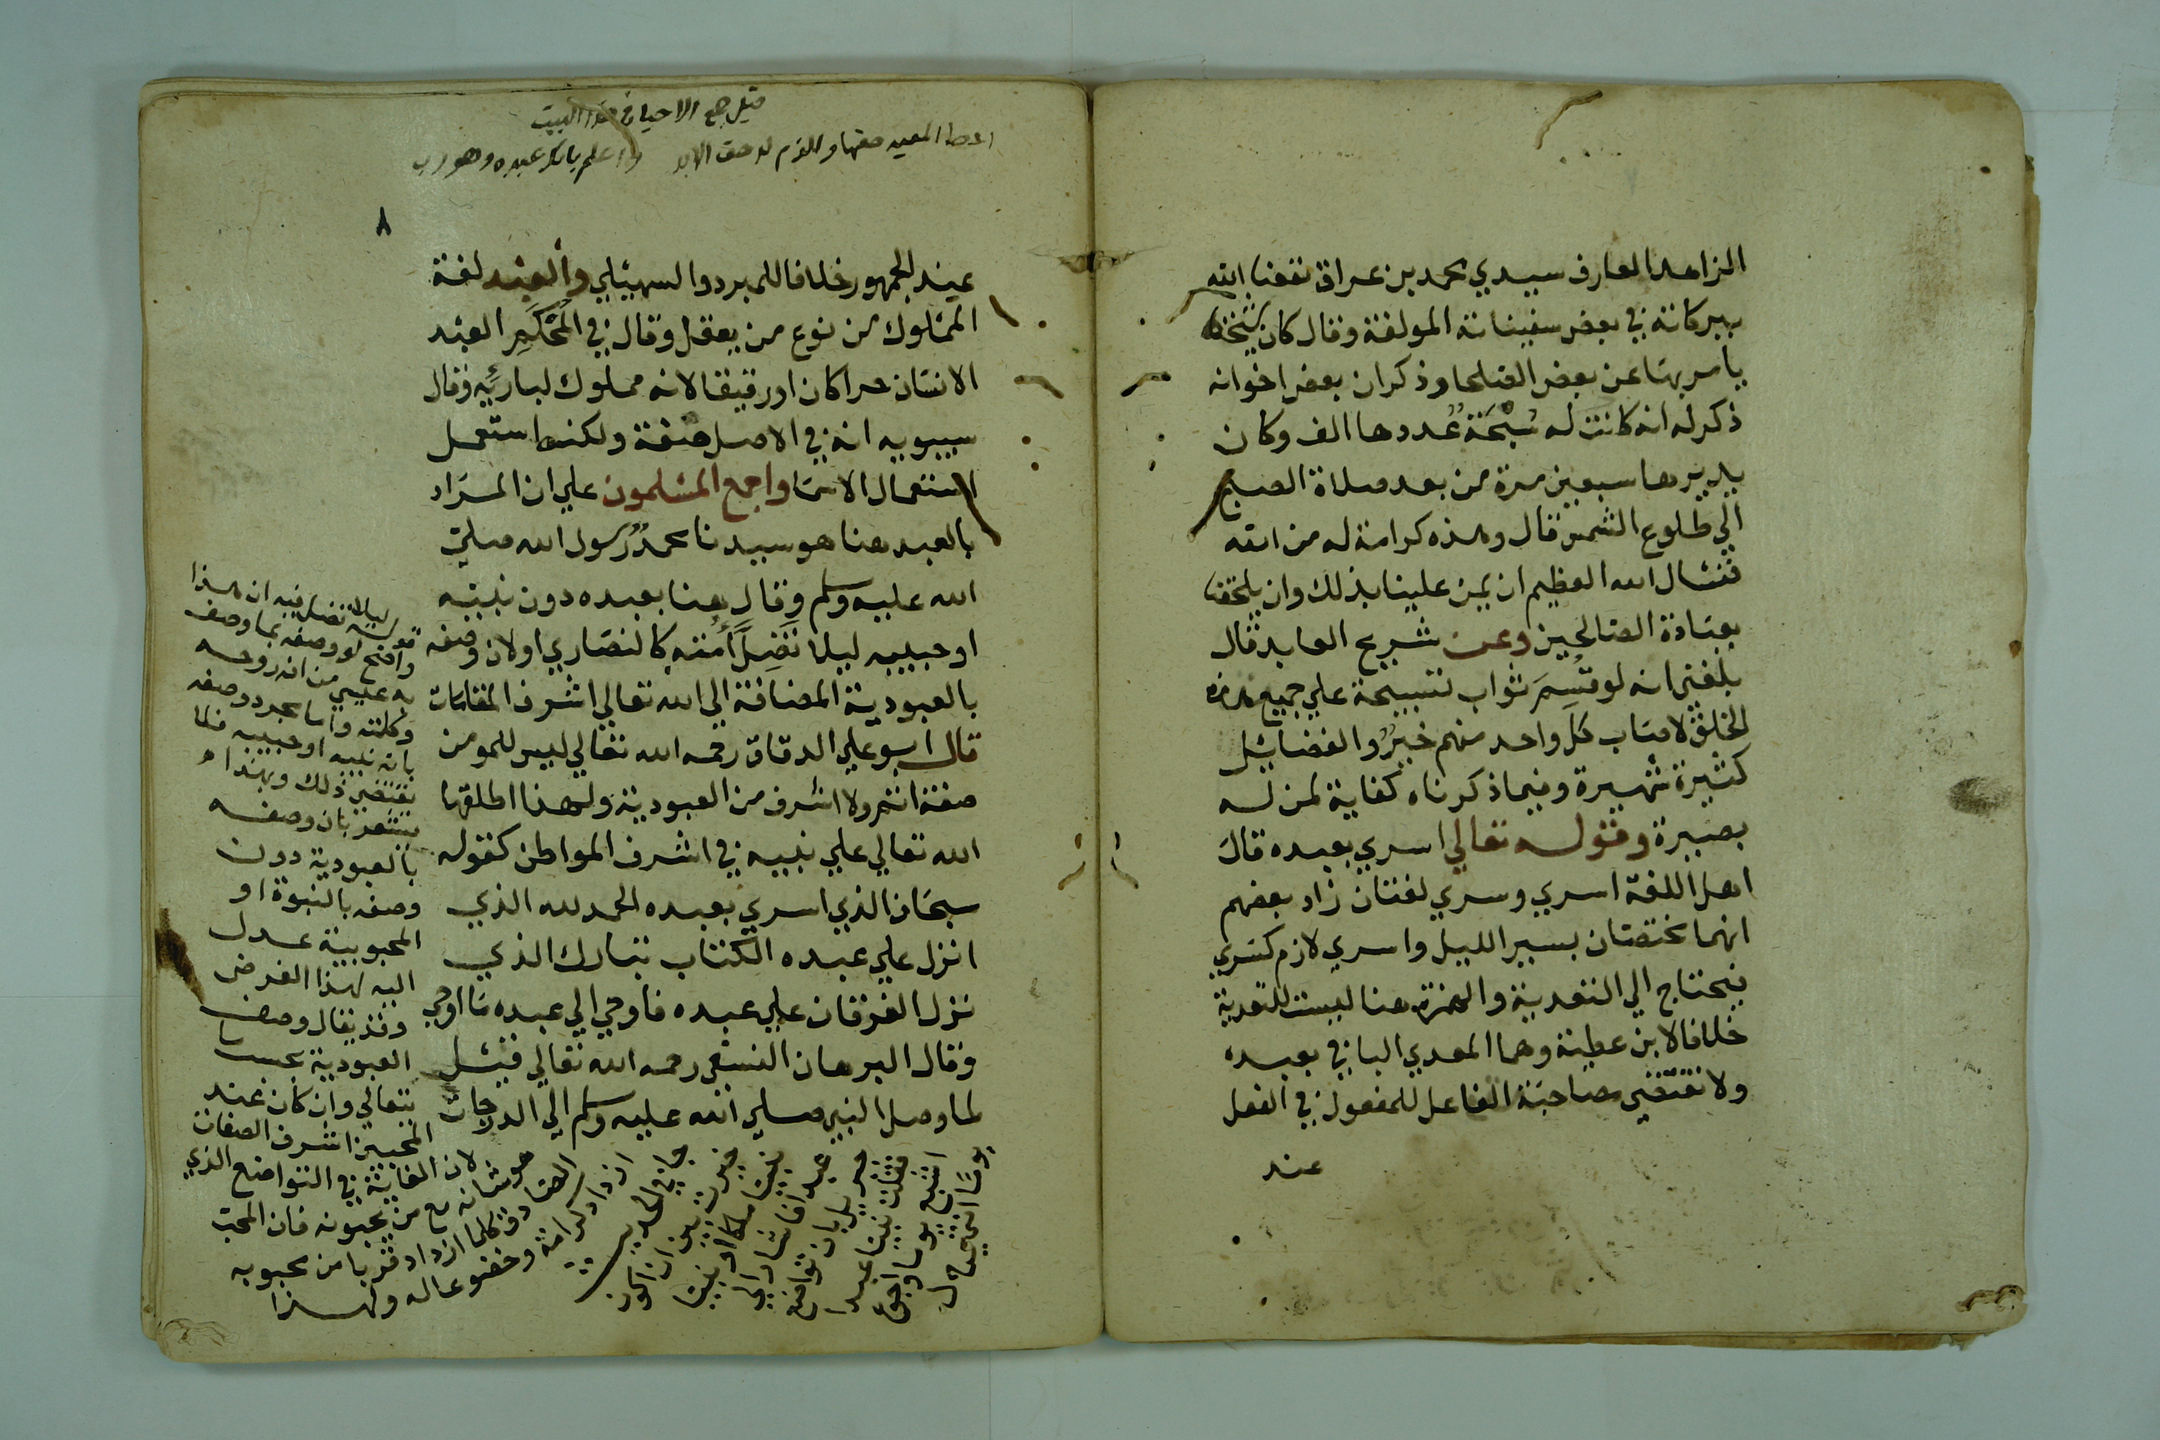 الزاهد العارف سيدي محمد بن عراق نفعنا الله
ببركاته في بعض سفيناته المولفة وقال كان شيخنا
يامر بها عن بعض الصلحا وذكر ان بعض اخوانه
ذكر له انه كانت له سُبْحَة عُددها الف وكان
يديرها سبعين مرة من بعد صلاة الصبح
الي طلوع الشمس قال وهذه كرامة له من الله
فنسال الله العظيم ان يمن علينا بذلك وان يلحقنا
بعبادة الصالحين وعن شريح العابد قال
بلغني انه لو قُسِمَ ثواب تسبيحة علي جميع هذه
الخلق لاصاب كل واحد منهم خيرٌ والفضايل
كثيرة شهيرة وفيما ذكرناه كفاية لمن له
بصيرة وقوله تعالي اسري بعبده قال
اهل اللغة اسري وسري لغتان زاد بعضهم
انهما تختصان بسير الليل واسري لازم كسري
فيحتاج الي التعدية والهمزة هنا ليست للتعدية
خلافا لابن عطية وهما المعدي البا في بعبده
ولا تقتضي مصاحبة الفاعل للمفعول في الفعل
عند
قيل جمع الاحيان في هذا البيت
٨
عيند الجمهور خلافا للمبرد والسهيلي والعبد لغة
المملوك من نوع من يعقل وقال في المُحْكَمِ العبد
الانسان حرا كان او رقيقا لانه مملوك لباريه وقال
سيبويه انه في الاصل صفة ولكنه استعمل
استعمال الاسما واجمع المسلمون علي ان المراد
بالعبد هنا هو سيدنا محمد رسول الله صلي
الله عليه وسلم وقال هنا بعبده دون نبيه
او حبيبه ليلا تَضِلَّ أُمَّتُه كالنصاري او لان وصفه
بالعبودية المضافة الي الله تعالي اشرف المقامات
قال ابو علي الدقاق رحمه الله تعالي ليس للمومن
صفة اتم ولا اشرف من العبودية ولهذا اطلقها
الله تعالي علي نبيه في اشرف المواطن كقوله
سبحان الذي اسري بعبده الحمد لله الذي
انزل علي عبده الكتاب تبارك الذي
نزل الفرقان علي عبده فاوحي الي عبده ما اوحي
وقال البرهان النسفي رحمه الله تعالي قيل
لما وصل النبي صلي الله عليه وسلم الي الدرجات
قوله ليلا تضل فيه ان هذا
واضح لو وصفه بما وصف
به عيسي من انه روحه
وكلمته واما مجرد وصفه
بانه نبيه او حبيبه فلا
يقتضي ذلك وبهذا
يشعر بان وصفه
بالعبودية دون
وصفه بالنبوة او
المحبوبية عدل
اليه لهذا الغرض
وقد يقال وصف
العبودية
تعالي وان كان عند
المحبين اشرف الصفات
لان الغاية في التواضع الذي
هو شانه مع من يحبونه فان المحب
الصادق كلما ازداد قربا من محبوبه
ازداد كرامة وخضوعا له ولهذا